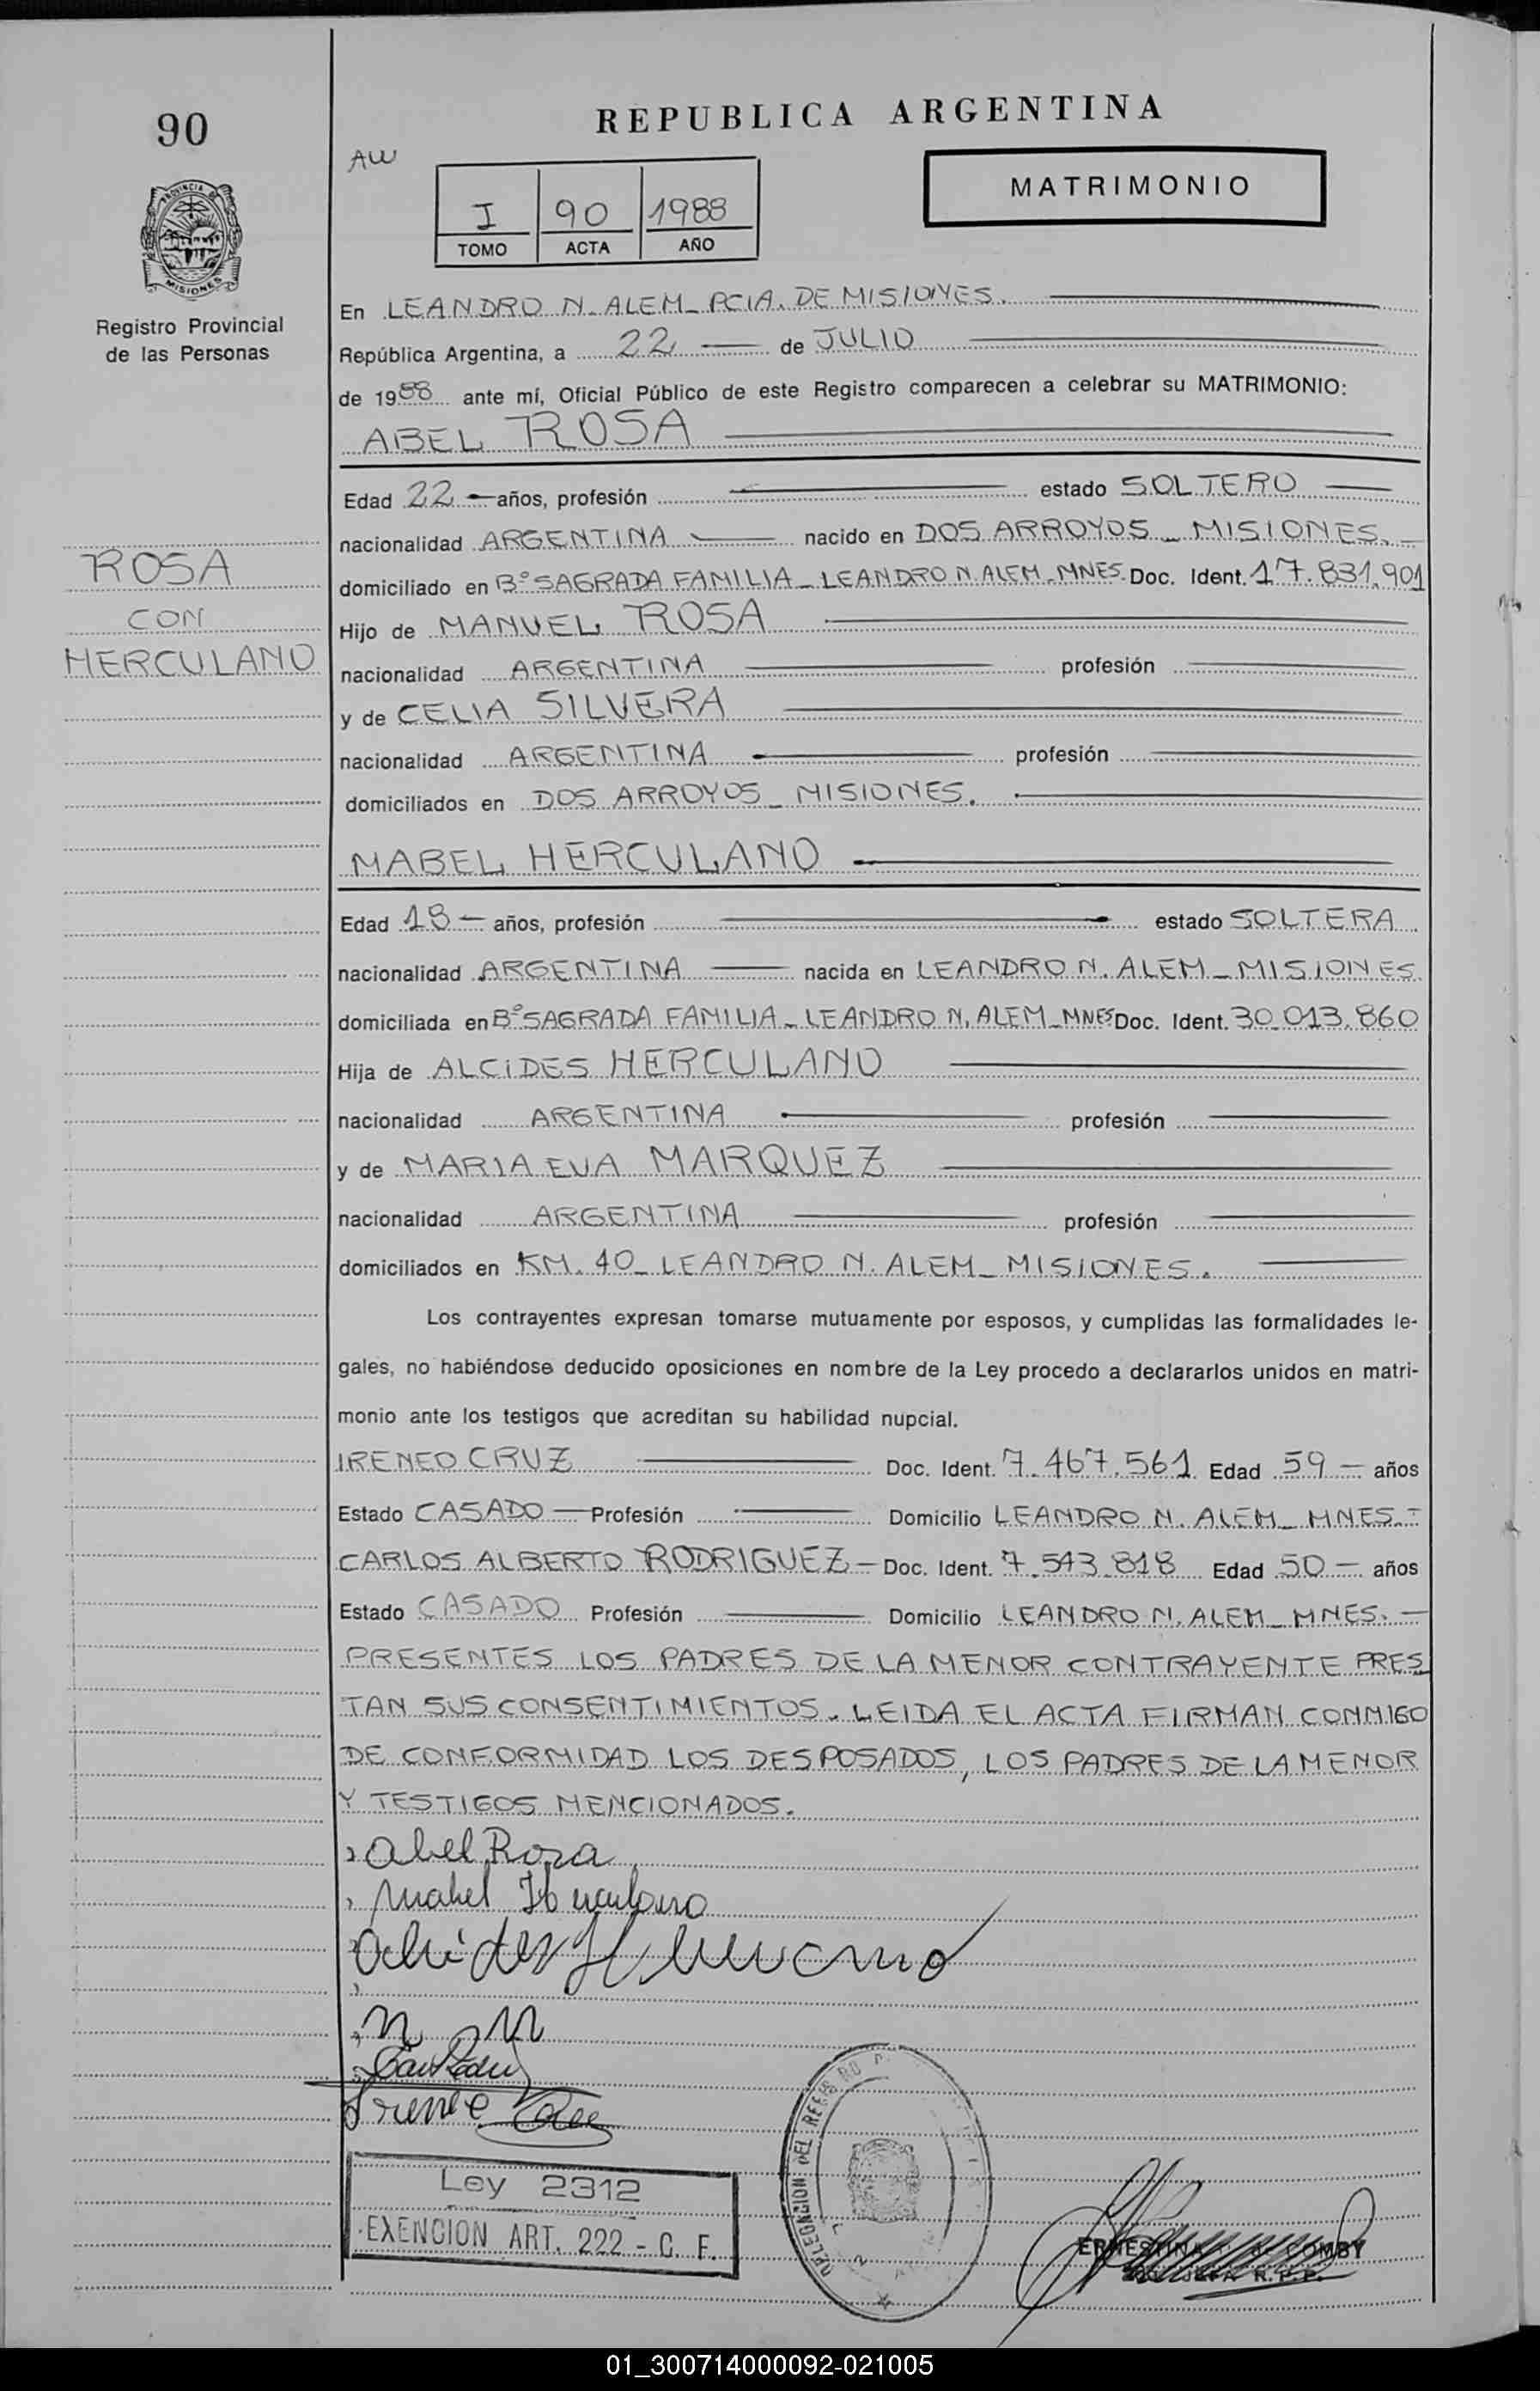 90
REPUBLICA ARGENTINA
AW
MATRIMONIO
I 90 1988
TOMO ACTA AÑO
PROVINCIA DE
MISIONES
Registro Provincial
de las Personas
En LEANDRO N. ALEM_ PCIA. DE MISIONES.
República Argentina, a 22 de JULIO
de 1988 ante mí, Oficial Público de este Registro comparecen a celebrar su MATRIMONIO:
ABEL ROSA
Edad 22 años, profesión estado SOLTERO
nacionalidad ARGENTINA nacido en DOS ARROYOS _ MISIONES.
domiciliado en Bº SAGRADA FAMILIA _ LEANDRO N. ALEM_MNES. Doc. Ident. 17.831.901
ROSA
CON
HERCULANO
Hijo de MANUEL ROSA
nacionalidad ARGENTINA profesión
y de CELIA SILVERA
nacionalidad ARGENTINA profesión
domiciliados en DOS ARROYOS _ MISIONES.
MABEL HERCULANO
Edad 18 años, profesión estado SOLTERA
nacionalidad ARGENTINA nacida en LEANDRO N. ALEM _ MISIONES
domiciliada en Bº SAGRADA FAMILIA _ LEANDRO N. ALEM_MNES Doc. Ident. 30.013.860
Hija de ALCIDES HERCULANO
nacionalidad ARGENTINA profesión
y de MARIA EVA MARQUEZ
nacionalidad ARGENTINA profesión
domiciliados en KM. 40 _ LEANDRO N. ALEM _ MISIONES.
Los contrayentes expresan tomarse mutuamente por esposos, y cumplidas las formalidades le-
gales, no habiéndose deducido oposiciones en nombre de la Ley procedo a declararlos unidos en matri-
monio ante los testigos que acreditan su habilidad nupcial.
IRENEO CRUZ Doc. Ident. 7.467.561 Edad 59 años
Estado CASADO Profesión Domicilio LEANDRO N. ALEM_ MNES.
CARLOS ALBERTO RODRIGUEZ Doc. Ident. 7.543.818 Edad 50 años
Estado CASADO Profesión Domicilio LEANDRO N. ALEM_ MNES.
PRESENTES LOS PADRES DE LA MENOR CONTRAYENTE PRES
TAN SUS CONSENTIMIENTOS. LEIDA EL ACTA FIRMAN CONMIGO
DE CONFORMIDAD LOS DESPOSADOS, LOS PADRES DE LA MENOR
Y TESTIGOS MENCIONADOS.
Abel Rosa
Mabel Herculano
Alcides Herculano
Ireneo
DELEGACION DEL REGISTRO
Ley 2312
EXENCION ART. 222 - C. F.
ERNESTINA
JEFA R.P.P.
01_300714000092-021005